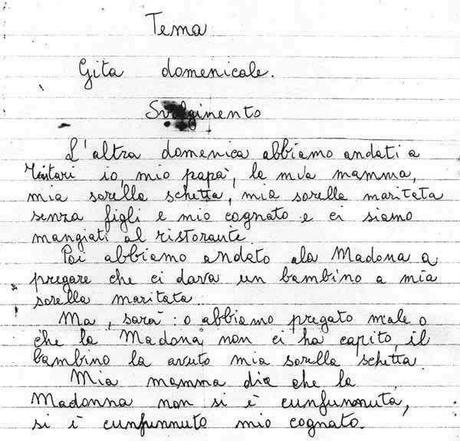 Tema
Gita domenicale.
Svolginento
L'altra domenica abbiamo andati a
Tintari io, mio papà, la mia mamma,
mia sorella schetta, mia sorella maritata
senza figli e mio cognato e ci siamo
mangiati al ristorante.
Poi abbiamo andato ala Madona a
pregare che ci dava un bambino a mia
sorella maritata.
Ma, sarà: o abbiamo pregato male o
che la Madona non ci ha capito, il
bambino la avuto mia sorella schetta.
Mia mamma dia che la
Madonna non si è cunfunnuta,
si è cunfunnuto mio cognato.